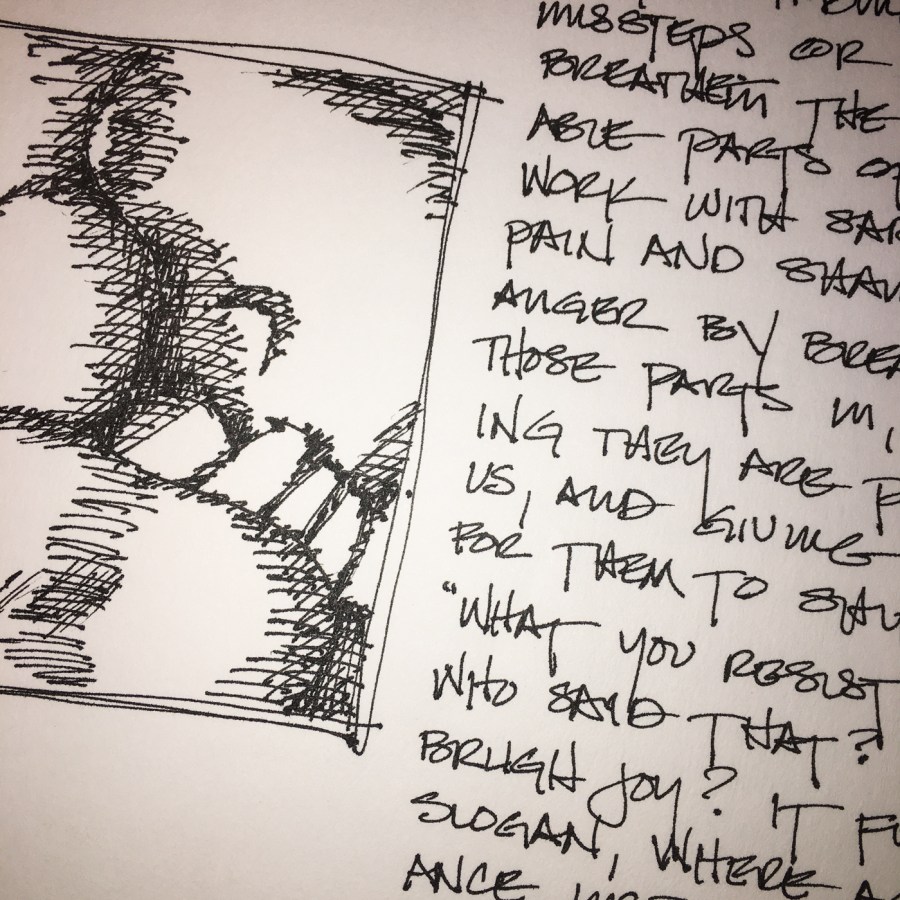 MISSTEPS OR
BREATHE IN THE
ABLE PARTS
WORK WITH
PAIN AND
ANGER BY
THOSE PARTS IN,
ING THEY ARE
US, AND GIVING
FOR THEM TO
"WHAT YOU RESIST
WHO SAID THAT?
BRUGH JOY? IT
SLOGAN, WHERE
ANCE